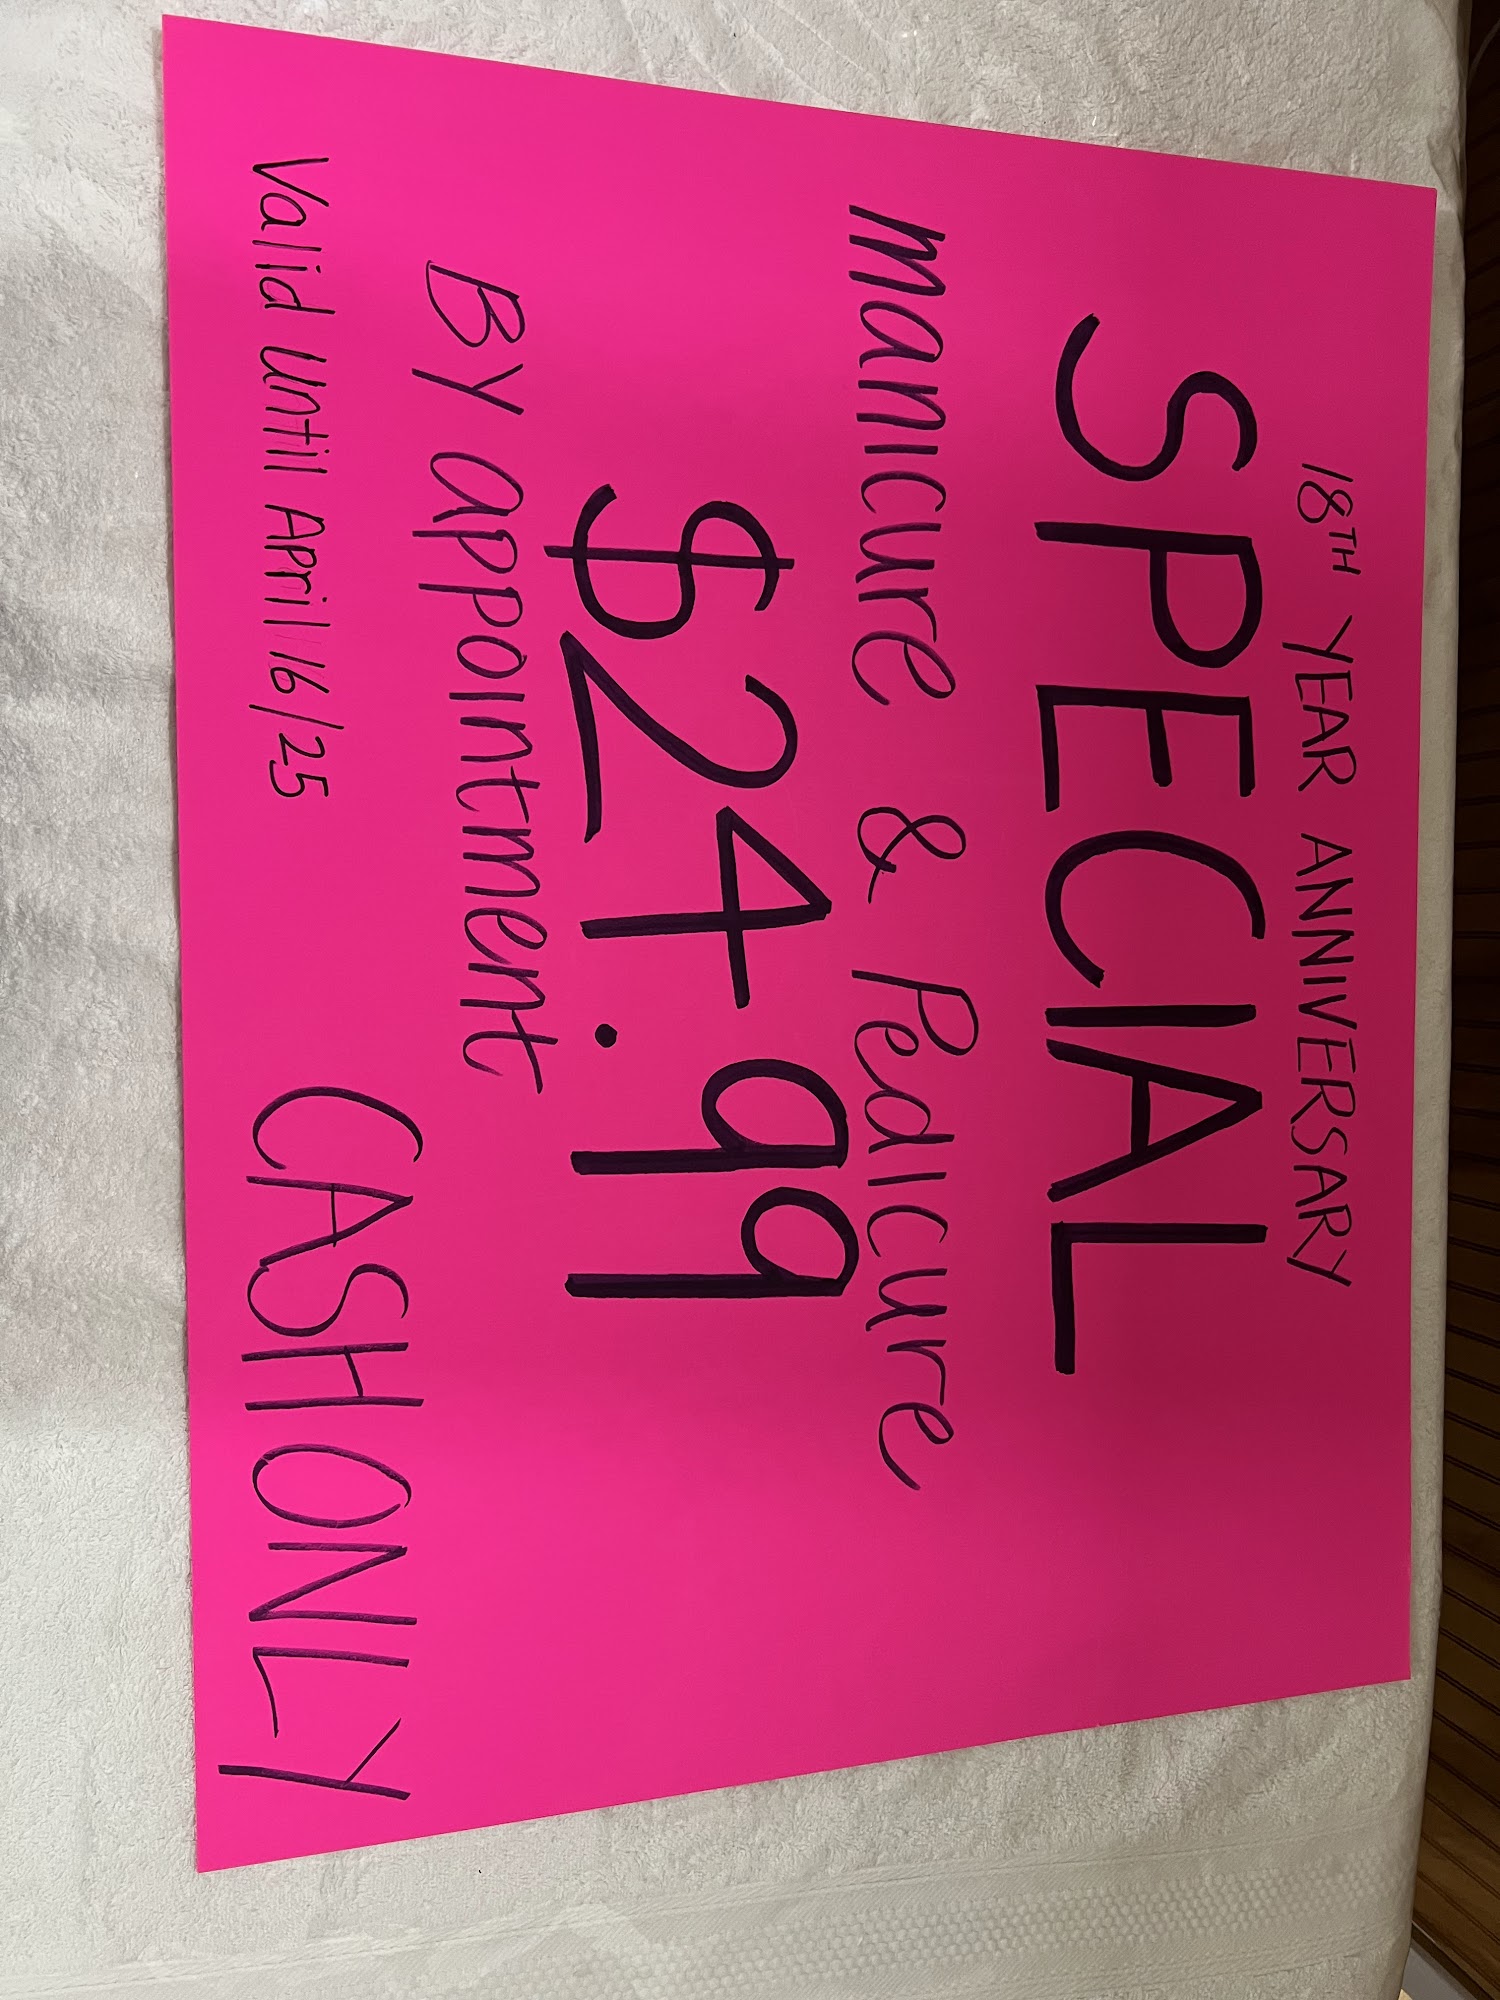 18TH YEAR ANNIVERSARY
SPECIAL
Manicure & Pedicure
$24.99
By appointment
Valid until April 16/25
CASH ONLY